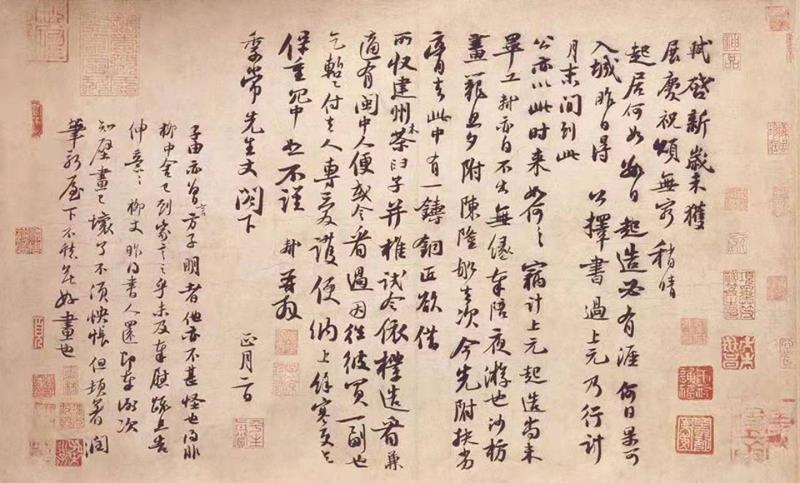 軾啓新歲未獲
展慶祝頌無窮稍晴
起居何如數日起造必有涯何日果可
入城昨日得公擇書過上元乃行計
月末間到此
公亦以此時來如何〻竊計上元起造尚未
畢工軾亦自不出無緣奉陪夜游也沙枋
畫籠旦夕附陳隆船去次今先附扶劣
膏去此中有一鑄銅匠欲借
所收建州木茶臼子并椎試令依樣造看兼
適有閩中人便或令看過因往彼買一副也
乞暫付去人專愛護便納上餘寒更乞
保重冗中恕不謹軾再拜
季常先生丈閣下
正月二日
子由亦曾言方子明者他亦不甚怪也得非
柳中舍已到家言之乎未及奉慰疏且告
伸意〻柳丈昨得書人還即奉謝次
知壁畫已壞了不須怏悵但頓著潤
筆新屋下不愁無好畫也